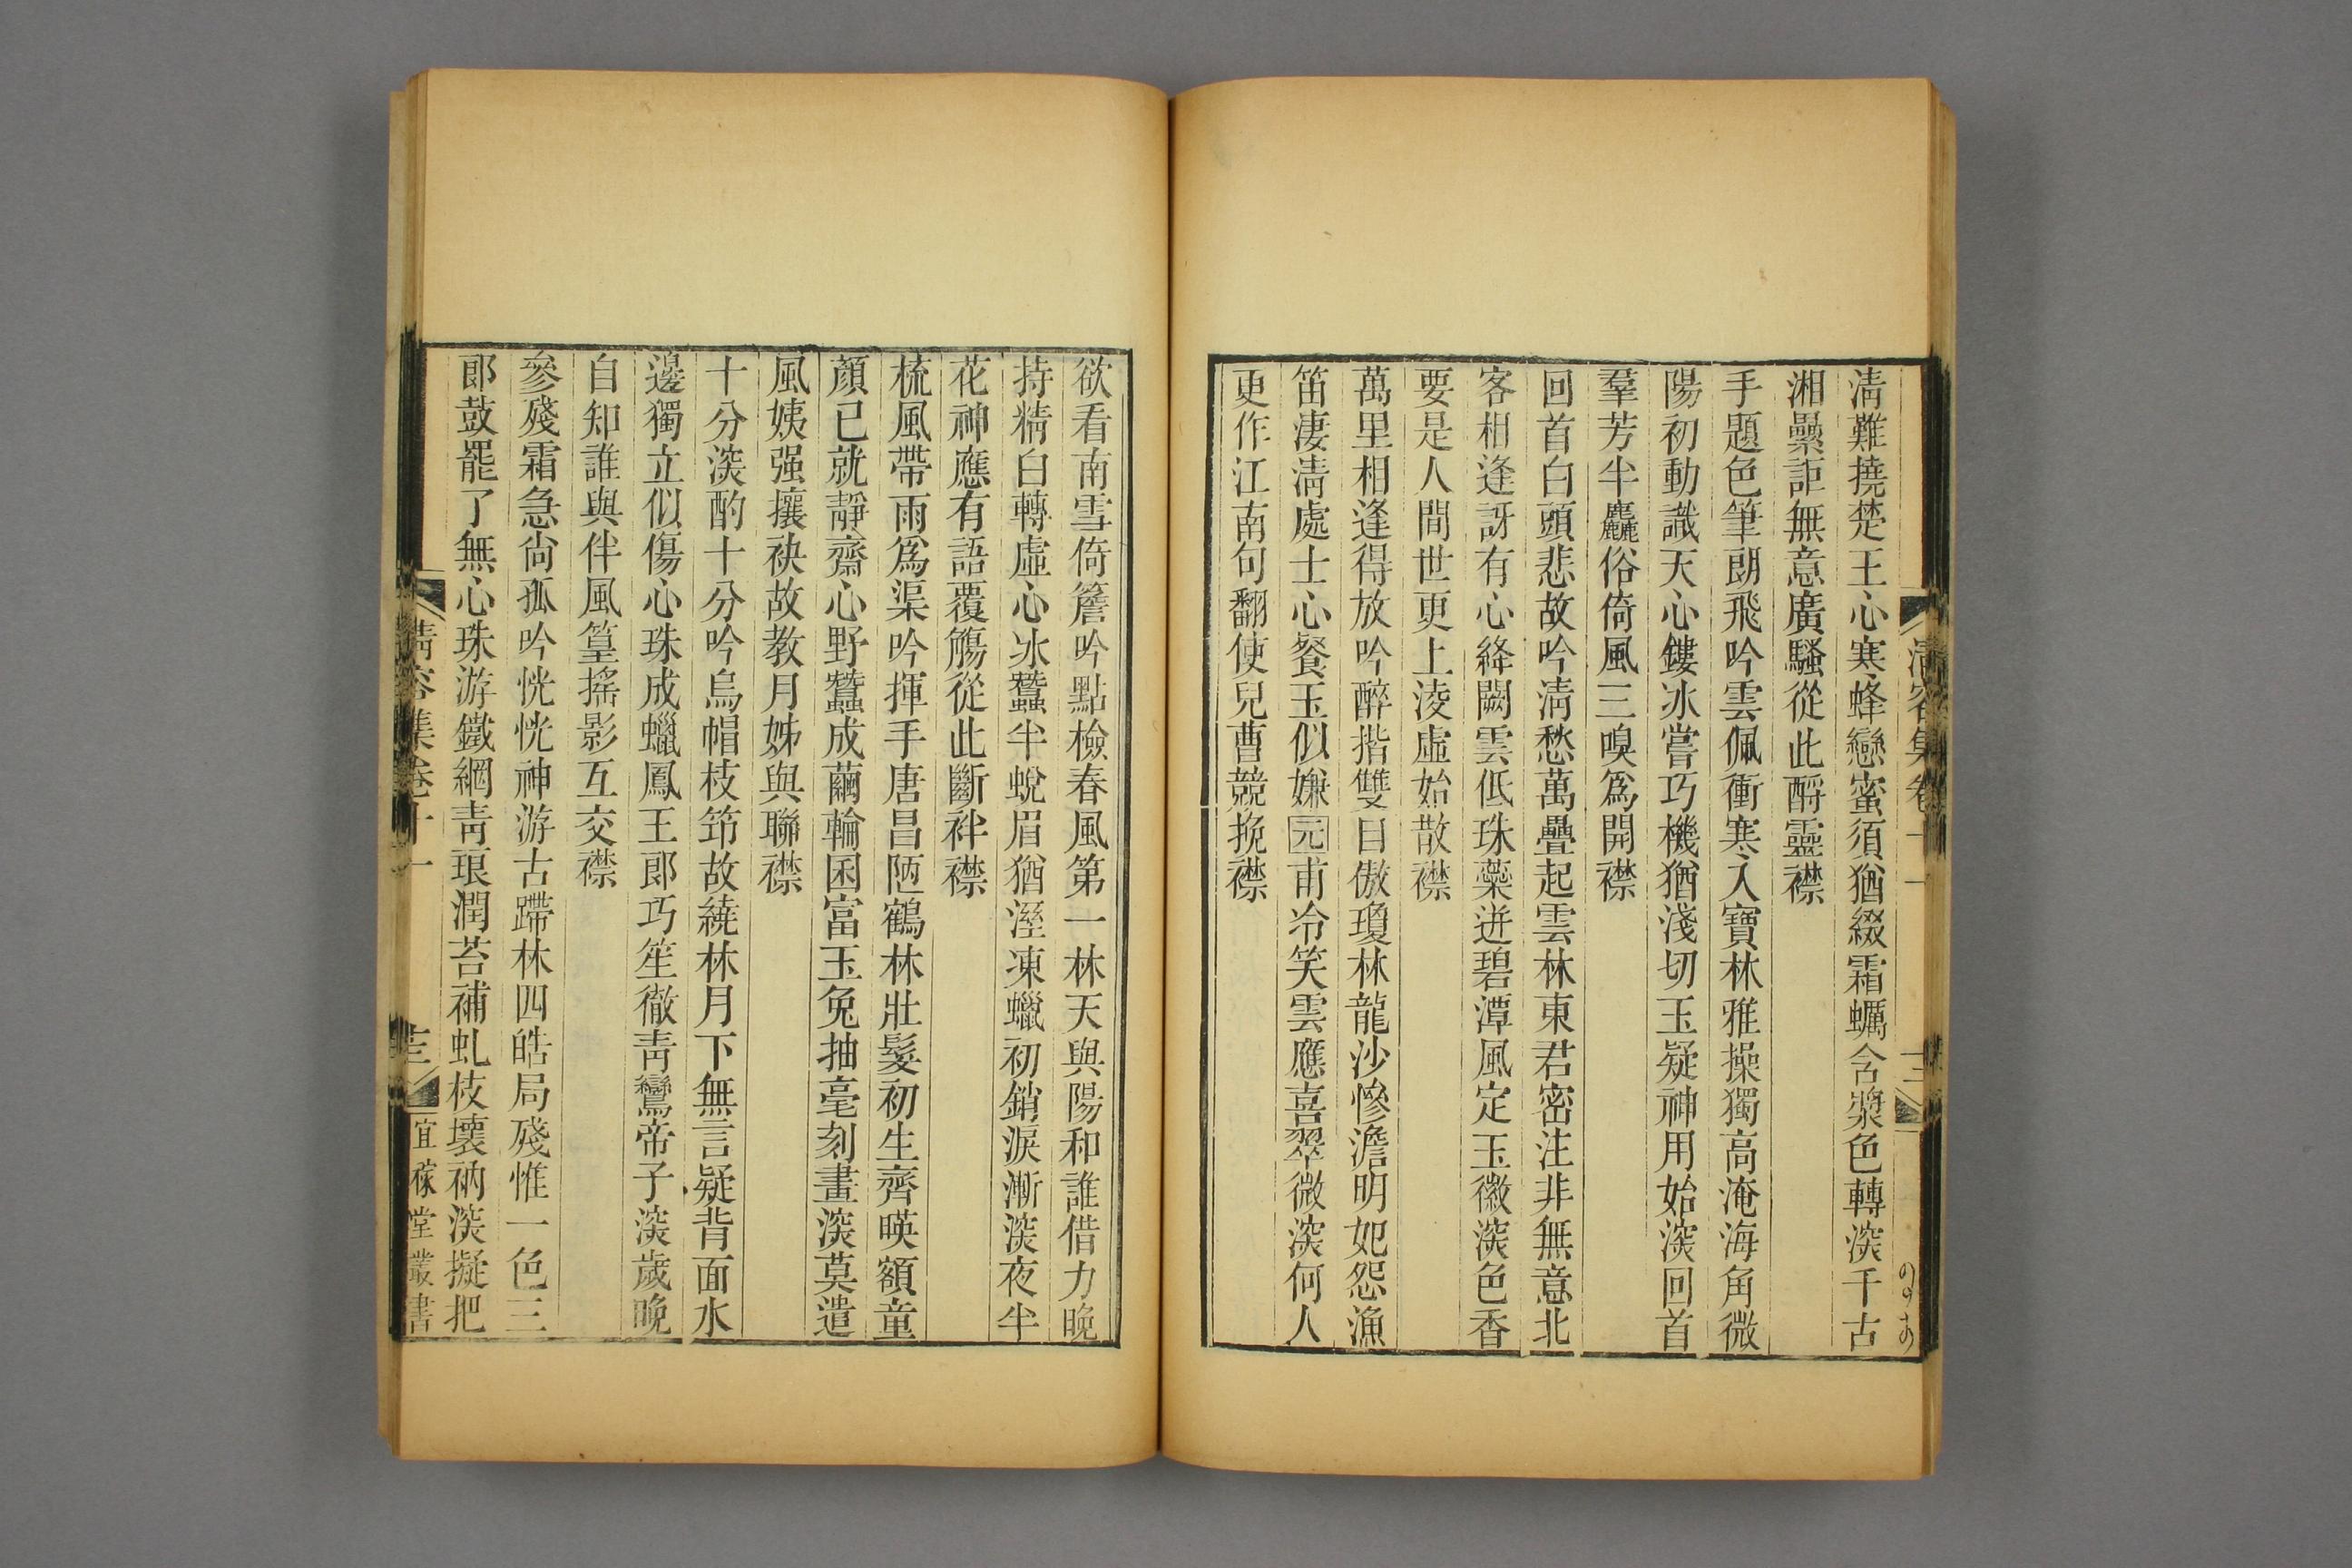 清難撓楚王心寒蜂戀蜜須猶綴霜蠣含漿色轉深千古
湘纍詎無意廣騷從此酹靈襟
手題色筆朗飛吟雲佩衝寒入寶林雅操獨高淹海角微
陽初動識天心鏤冰嘗巧機猶淺切玉疑神用始深回首
羣芳半麤俗倚風三嗅爲開襟
回首白頭悲故吟清愁萬疊起雲林東君密注非無意北
客相逢訝有心絳闕雲低珠蘂迸碧潭風定玉徽深色香
要是人間世更上淩虛始散襟
萬里相逢得放吟醉揩雙目傲瓊林龍沙慘澹明妃怨漁
笛淒清處士心餐玉似嫌元甫冷笑雲應喜翠微深何人
更作江南句翻使兒曹競挽襟
清容集卷十一
十三
欲看南雪倚簷吟點檢春風第一林天與陽和誰借力晚
持精白轉虛心冰蠶半蛻眉猶溼凍蠟初銷淚漸深夜半
花神應有語覆觴從此斷袢襟
梳風帶雨爲渠吟揮手唐昌陋鶴林壯髮初生齊暎額童
顏已就靜齋心野蠶成繭輪囷富玉兔抽毫刻畫深莫遣
風姨强攘袂故教月姊與聯襟
十分深酌十分吟烏帽枝筇故繞林月下無言疑背面水
邊獨立似傷心珠成蠟鳳王郎巧笙徹青鸞帝子深歲晚
自知誰與伴風篁搖影互交襟
參殘霜急尙孤吟恍恍神游古蹛林四皓局殘惟一色三
郎鼓罷了無心珠游鐵網青琅潤苔補虬枝壞衲深擬把
清容集卷十一
十三
宜稼堂叢書